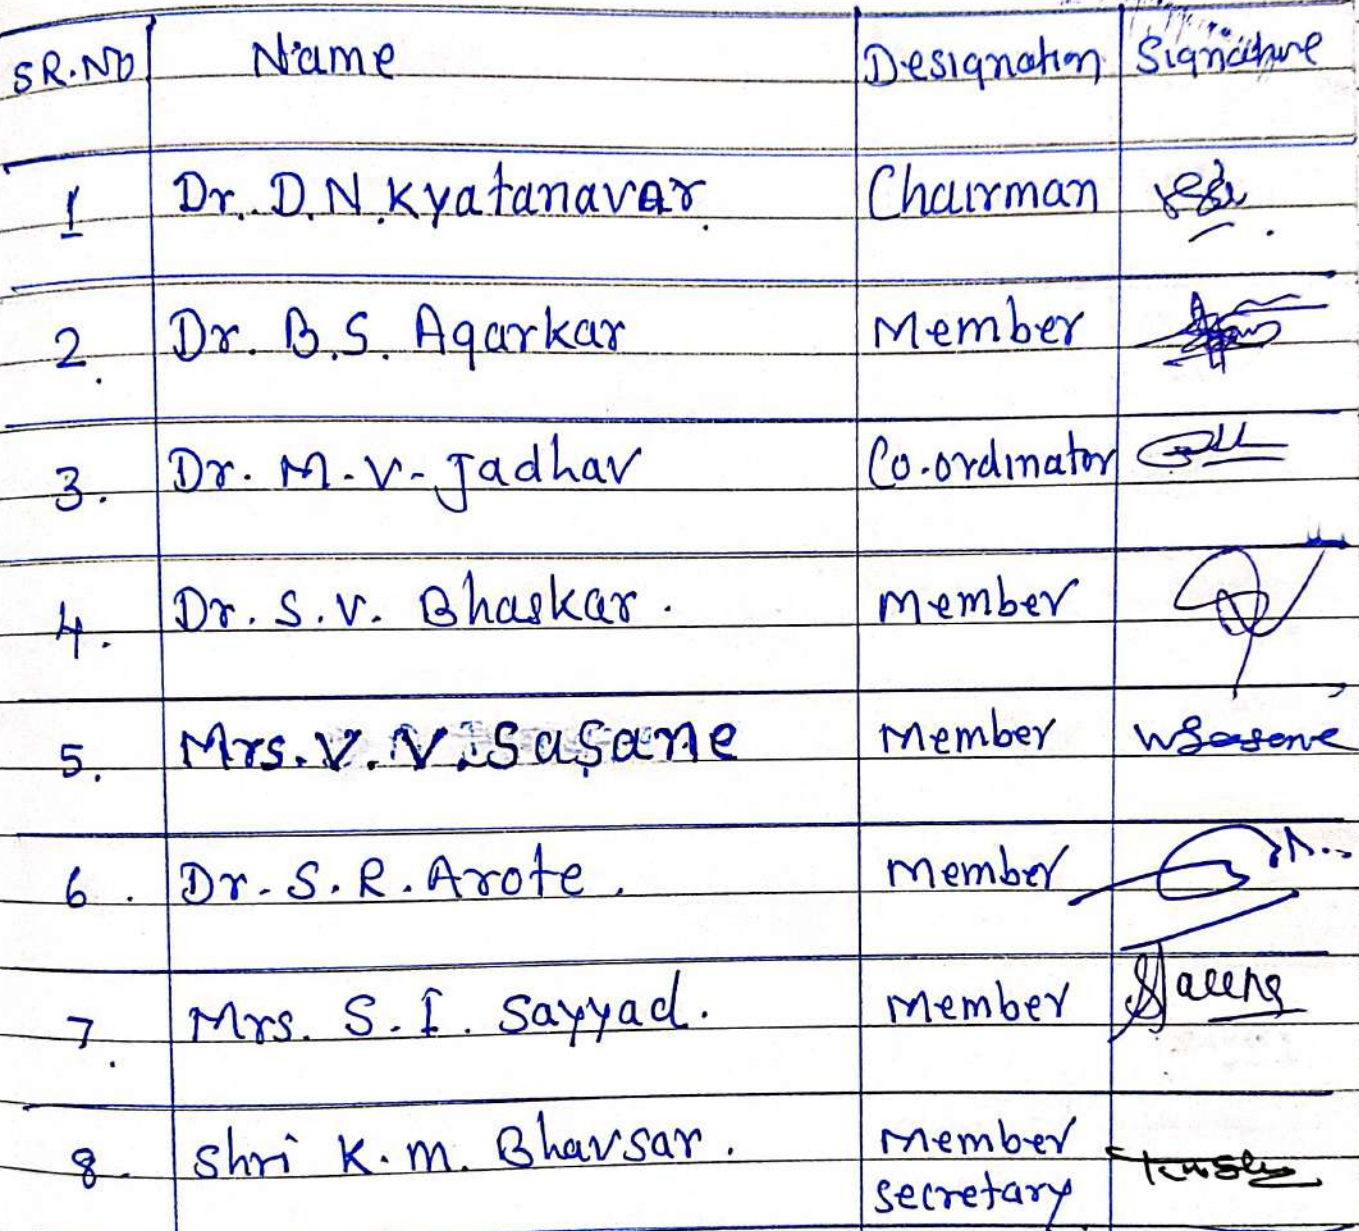 SR.NO Name Designation Signature
1 Dr. D.N.Kyatanavar. Chairman
2. Dr. B.S. Agarkar Member
3. Dr. M.V. Jadhav Co.ordinator
4. Dr. S.V. Bhaskar. Member
5. Mrs. V. V. Sasane Member VVSasane
6. Dr. S.R. Arote. Member
7. Mrs. S.I. Sayyad. Member
8. Shri K.M. Bhavsar. Member
secretary